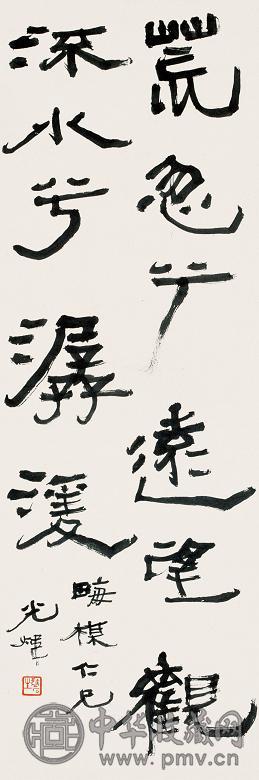 荒忽兮遠望觀
流水兮潺湲
仁兄
光煒
中华收藏网
www.pmv.cn